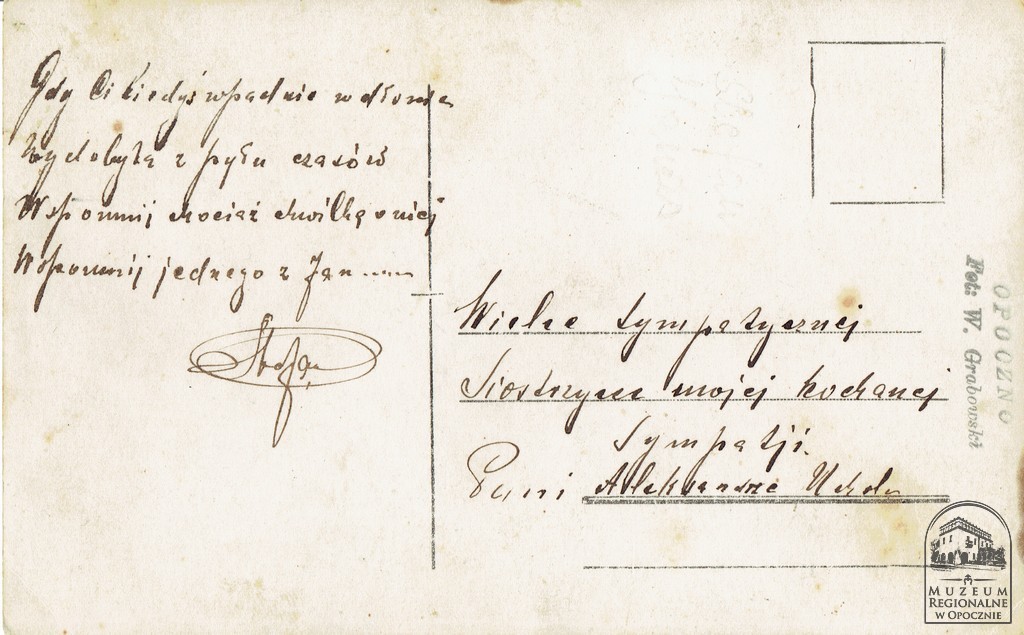 Gdy Ci kiedyś wpadnie w dłonie
Wydobyta z pyłu czasów
Wspomnij chociaż chwilką o niej
Wspomnij jednego z
Stefan
Wielce sympatycznej
Siostrzyce mojej kochanej
Sympatji.
Pani Aleksandrze
OPOCZNO
Fot: W. Grabowski
MUZEUM
REGIONALNE
W OPOCZNIE